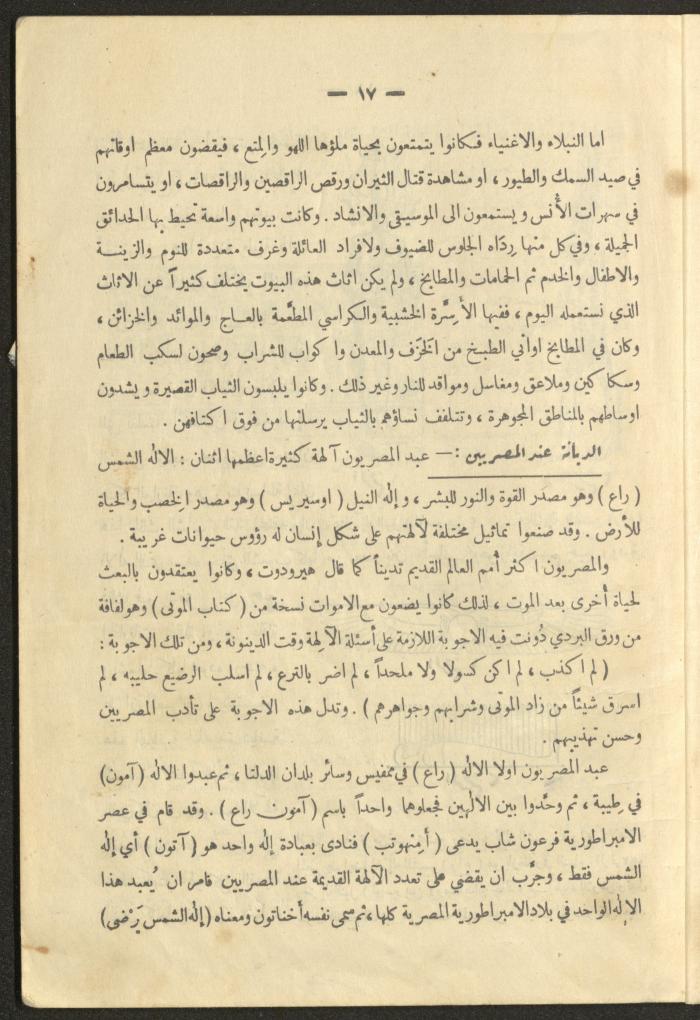 — ١٧ —
اما النبلاء والاغنياء فكانوا يتمتعون بحياة ملؤها اللهو والمِتع ، فيقضون معظم اوقاتهم
في صيد السمك والطيور ، او مشاهدة قتال الثيران ورقص الراقصين والراقصات ، او يتسامرون
في سهرات الأُنس ويستمعون الى الموسيقى والانشاد . وكانت بيوتهم واسعة تحيط بها الحدائق
الجميلة ، وفي كل منها رِدَاه الجلوس للضيوف ولافراد العائلة وغرف متعددة للنوم والزينة
والاطفال والخدم ثم الحمامات والمطابخ ، ولم يكن اثاث هذه البيوت يختلف كثيراً عن الاثاث
الذي نستعمله اليوم ، ففيها الأَسِرَّة الخشبية والكراسي المطعَّمة بالعاج والموائد والخزائن ،
وكان في المطابخ اواني الطبخ من الخَزَف والمعدن واكواب للشراب وصحون لسكب الطعام
وسكاكين وملاعق ومغاسل ومواقد للنار وغير ذلك . وكانوا يلبسون الثياب القصيرة ويشدون
اوساطهم بالمناطق المجوهرة ، وتتلفف نساؤهم بالثياب يرسلنها من فوق اكتافهن .
الديانة عند المصريين : — عبد المصريون آلهة كثيرة اعظمها اثنان : الاله الشمس
( راع ) وهو مصدر القوة والنور للبشر ، وإله النيل ( اوسيريس ) وهو مصدر الخصب والحياة
للأرض . وقد صنعوا تماثيل مختلفة لآلهتهم على شكل إنسان له رؤوس حيوانات غريبة .
والمصريون اكثر أمم العالم القديم تديناً كما قال هيرودوت ، وكانوا يعتقدون بالبعث
لحياة أخرى بعد الموت ، لذلك كانوا يضعون مع الاموات نسخة من ( كتاب الموتى ) وهو لفافة
من ورق البردي دُونت فيه الاجوبة اللازمة على أسئلة الآلهة وقت الدينونة ، ومن تلك الاجوبة :
( لم اكذب ، لم اكن كسولا ولا ملحداً ، لم اضر بالترع ، لم اسلب الرضيع حليبه ، لم
اسرق شيئاً من زاد الموتى وشرابهم وجواهرهم ) . وتدل هذه الاجوبة على تأدب المصريين
وحسن تهذيبهم .
عبد المصريون اولا الاله ( راع ) في ممفيس وسائر بلدان الدلتا ، ثم عبدوا الاله ( آمون )
في طِيبة ، ثم وحَّدوا بين الالهين فجعلوهما واحداً باسم ( آمون راع ) . وقد قام في عصر
الامبراطورية فرعون شاب يدعى ( أمِنهوتب ) فنادى بعبادة إله واحد هو ( آتون ) أي إله
الشمس فقط ، وجرَّب ان يقضي على تعدد الآلهة القديمة عند المصريين فامر ان يُعبد هذا
الإله الواحد في بلاد الامبراطورية المصرية كلها ، ثم سمى نفسه أخناتون ومعناه (إله الشمس يَرْضى)